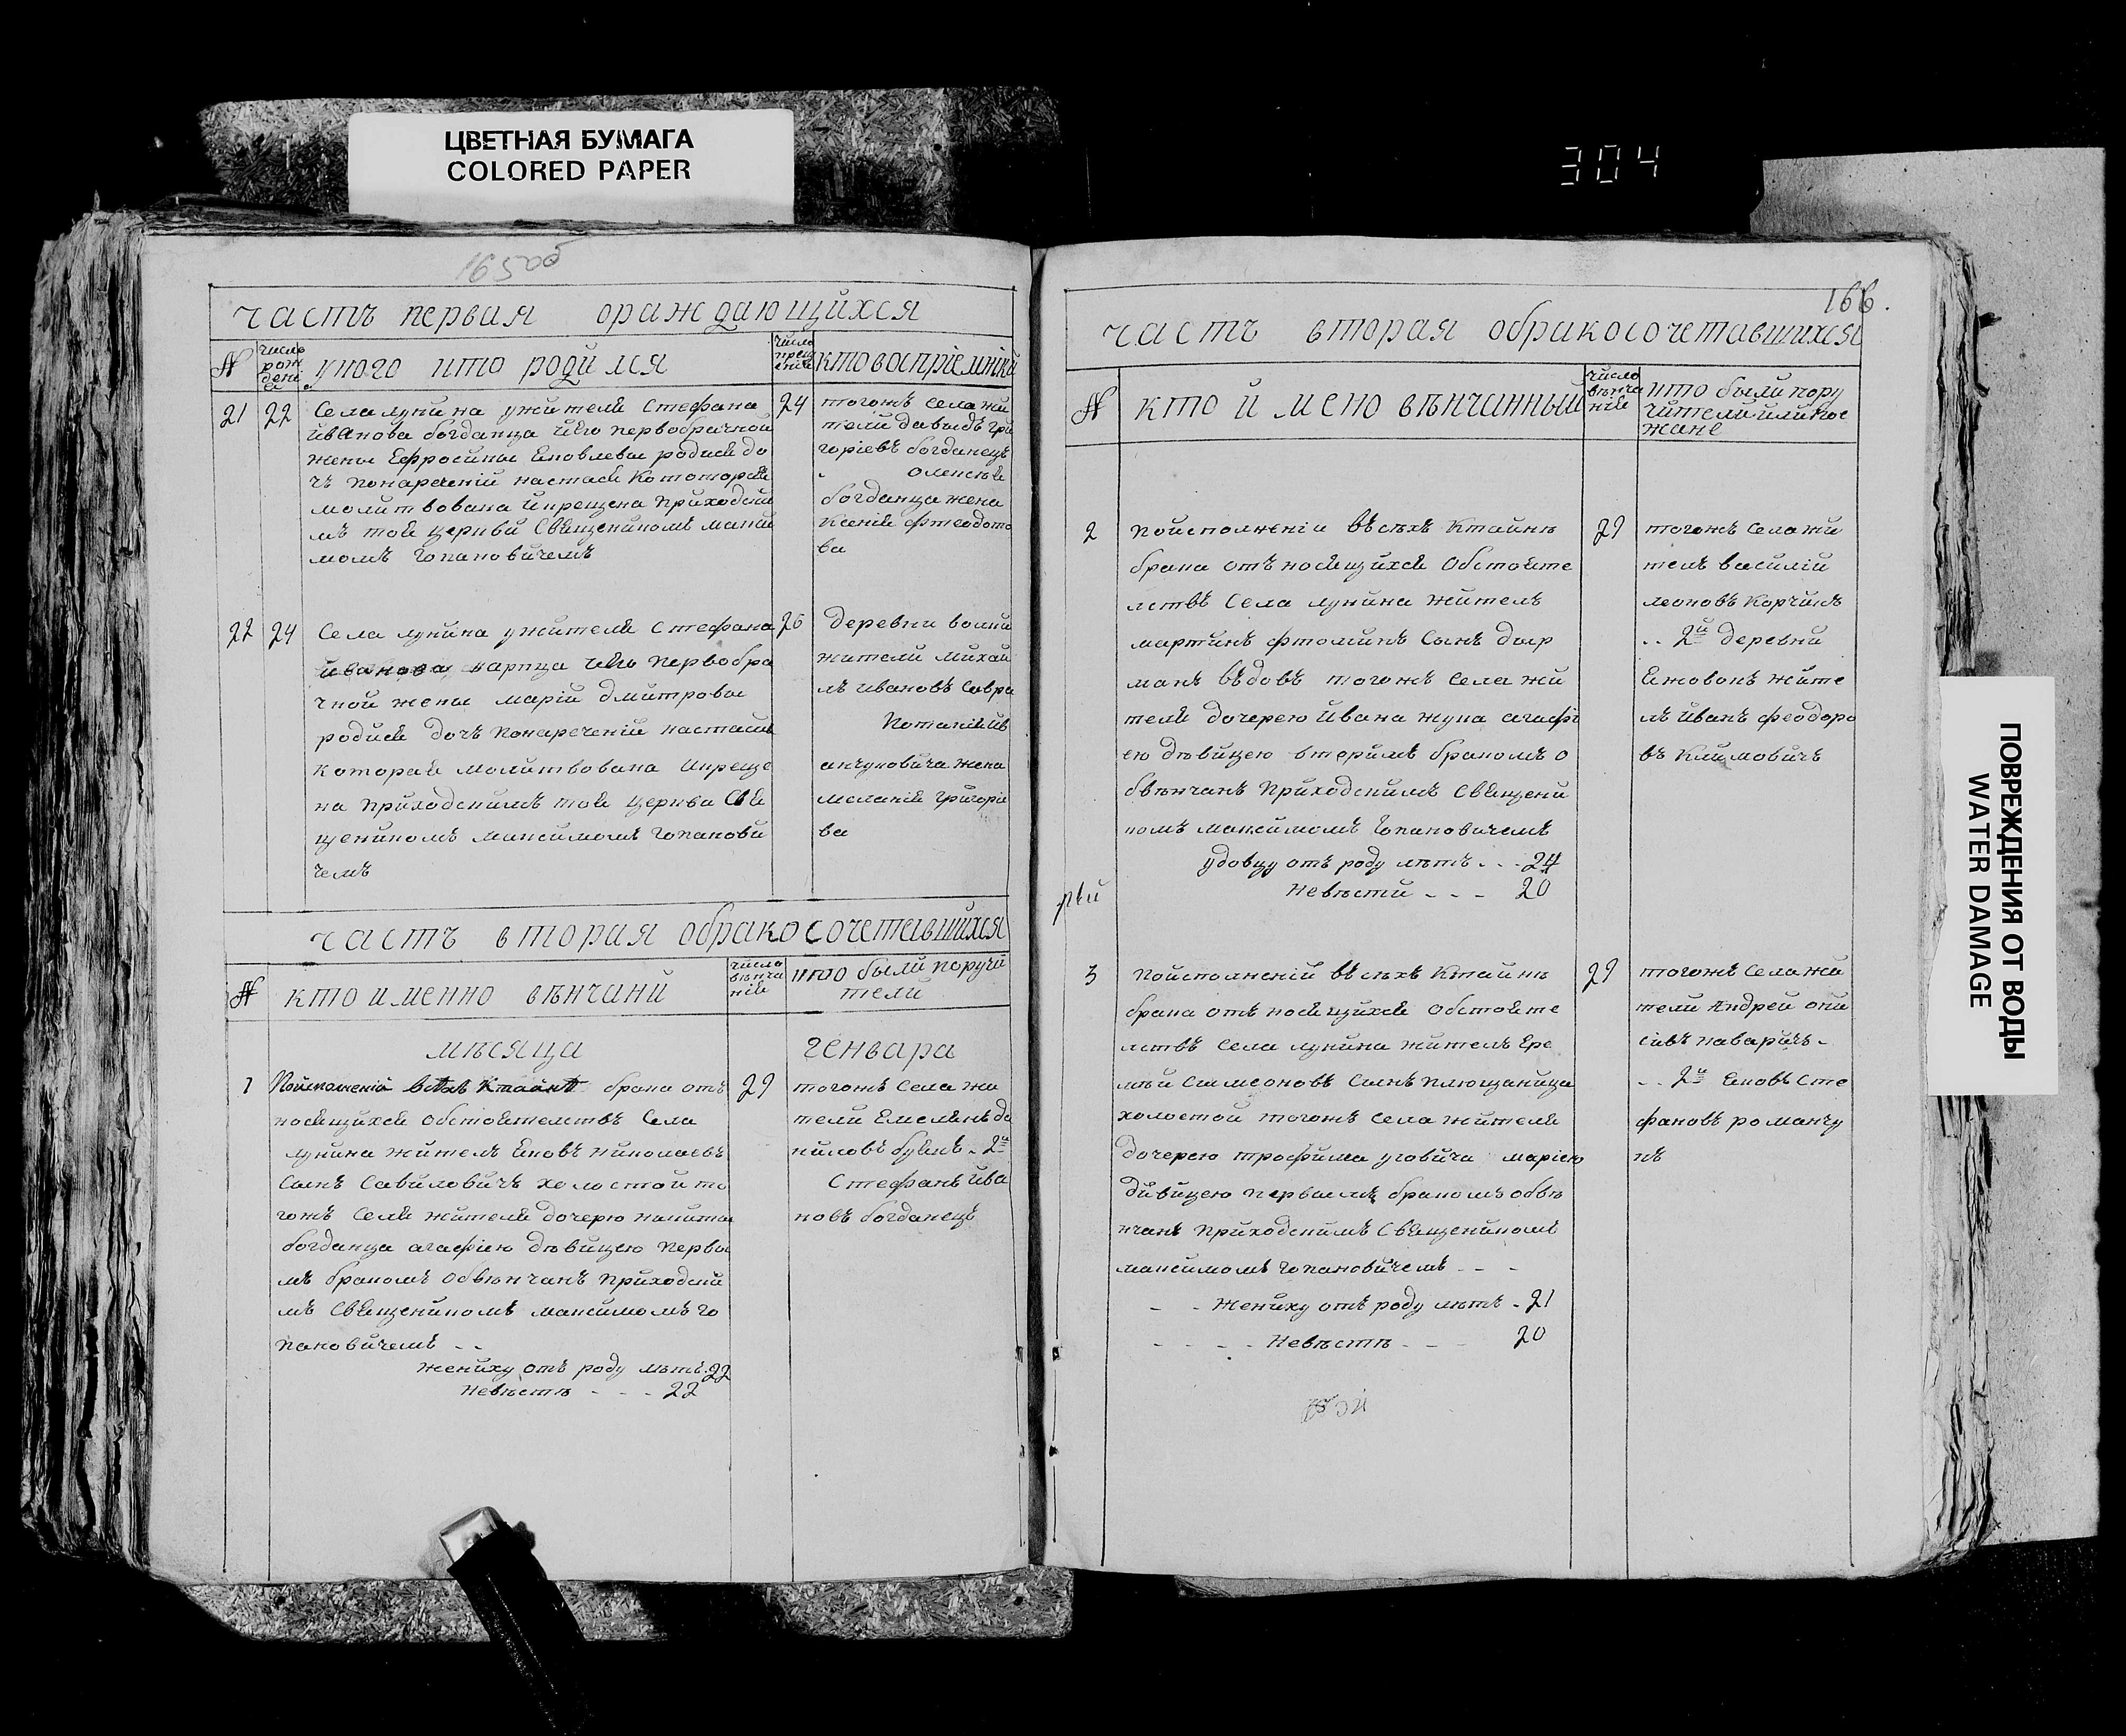 ЦВЕТНАЯ БУМАГА
COLORED PAPER
304
165об
часть первая ораждающихся
№
число рождения
укого кто родился
число крещения
кто восприемники
21
22
Села лунина ужителя Стефана
Иванова богданца иего первобрачной
жены Ефросины Яковлевы родися до
чъ понаречений настасия Кототорая
молитвована икрещена приходски
мъ тоя церкви Священикомъ макси
момъ гопановичемъ
24
тогожъ села жи
тели давыдъ гри
гориевъ богданецъ
богданца жена
ксения фтеодото
ва
22
24
Села лунина ужителя Стефана
Иванова карпца иего первобра
чной жены марии дмитровы
родися дочъ понаречений настасия
которая молитвована икреще
на приходскимъ тоя церкви Свя
щеникомъ максимомъ гопанови
чемъ
26
деревни волки
жители михай
лъ ивановъ савра
жена
мелания григориа
ва
часть вторая обракосочетавшихся
№
кто именно вѣнчани
число вѣнчания
кто были поручи
тели
мѣсяца генвара
1
Поисполнении всѣхъ Ктайнѣ брака отъ
носящихся обстоятелствъ Села
лунина жителъ Яковъ николаевъ
сынъ Савиловичъ холостой то
гожъ села жителя дочерею никиты
богданца агафиею дѣвицею первы
мъ бракомъ обвѣнчанъ приходски
мъ Священикомъ максимомъ го
пановичемъ
жениху отъ роду лѣтъ 22
Невѣстѣ - - - 22
29
тогожъ села жи
тели Емелянъ да
ниловъ буякъ. 2й
Стефанъ Ива
новъ богданецъ
166.
часть вторая обракосочетавшихся
№
кто и мено вѣнчанный
число вѣнчания
кто были пору
чители или пое
жане
2
Поисполнении всѣхъ Ктайнѣ
брака отъносящихся обстояте
лствъ Села лунина жителъ
мартинъ фтоминъ сынъ дыр
манъ вѣдовъ тогожъ села жи
теля дочерею Ивана жука агафи
ею дѣвицею вторимъ бракомъ о
бвѣнчанъ приходскимъ Священи
комъ максимомъ гопановичемъ
удовцу отъ роду лѣтъ - - - 24
Невѣсти - - - 20
29
тогожъ села жи
телъ василий
леоновъ Корчикъ
.. 2й деревни
Яжовокъ жите
лъ иванъ феодоро
въ климовичъ
3
Поисполнений всѣхъ Ктайнѣ
брака отъносящихся обстояте
лствъ села лунина жителъ Ере
мѣй симеоновъ сынъ плющаница
холостой тогожъ села жителя
дочерею трофима уговича мариею
дивицею первымъ бракомъ обвѣ
нчанъ приходскимъ Священикомъ
максимомъ гопановичемъ - - -
- - жениху отъ роду лѣтъ - 21
- - - - Невѣстѣ - - - 20
29
тогожъ села жи
тели Андрей они
сивъ наваричъ -
.. 2й Яковъ Сте
фановъ романчу
къ
ПОВРЕЖДЕНИЯ ОТ ВОДЫ
WATER DAMAGE